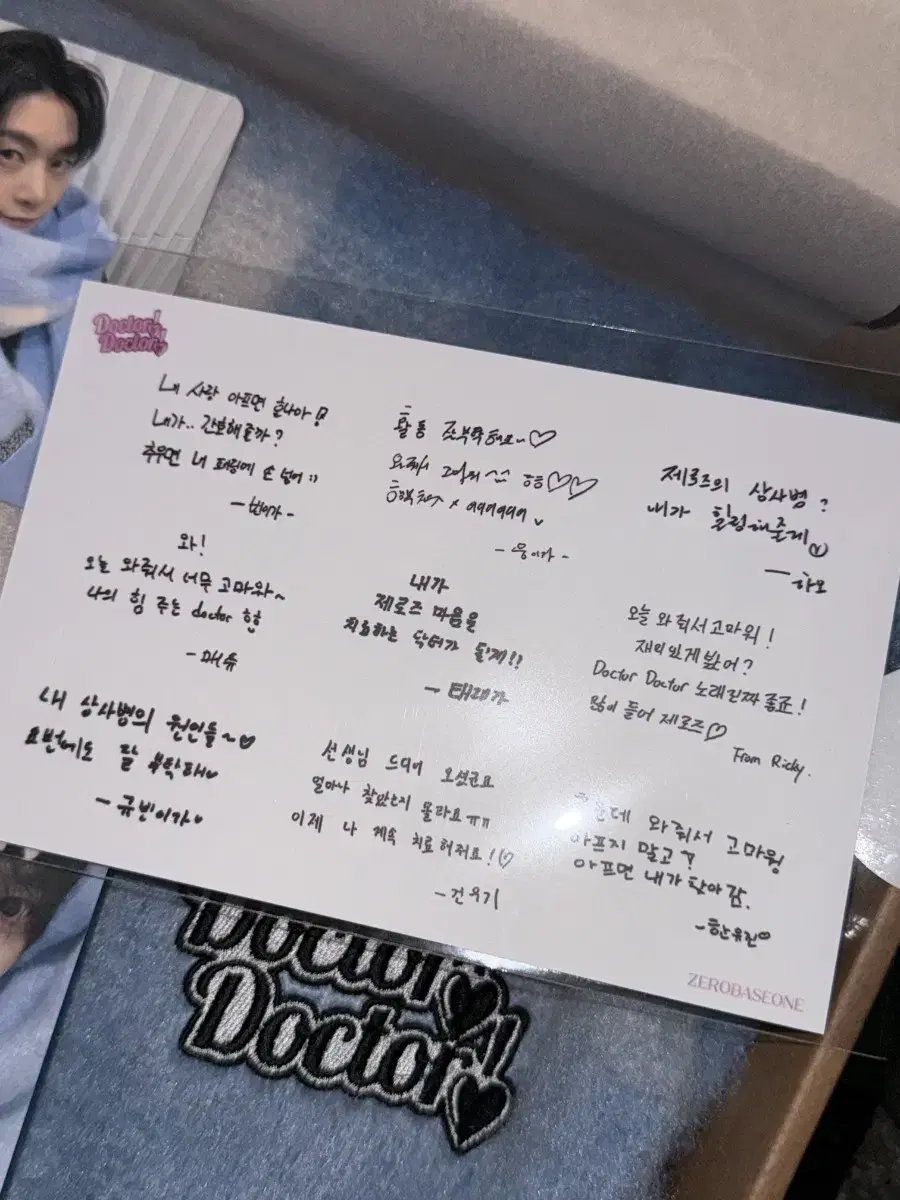 Doctor!
Doctor!
내 사랑 아프면 혼나아!
내가.. 간호해줄까?
추우면 내 패딩에 손 넣어 :)
- 빈이가 -
활동 잘부탁해요~♡
와줘서 고마워^^ ㅎㅎ♡♡
- 웅이가 -
제로즈의 상사병?
내가 힐링해줄게
- 하오
와!
오늘 와줘서 너무 고마워~
나의 힘 주는 doctor 현
- 매튜
내가
제로즈 마음을
치료하는 닥터가 될게!!
- 태래가
오늘 와줘서 고마워!
재미있게 봤어?
Doctor Doctor 노래 진짜 좋죠!
많이 들어 제로즈♡
From Ricky.
내 상사병의 원인들~♥
요번에도 잘 부탁해♥
- 규빈이가♥
선생님 드디어 오셨군요
얼마나 찾았는지 몰라요ㅠㅠ
이제 나 계속 치료해줘요!♡
- 건우기
추운데 와줘서 고마워
아프지 말고?
아프면 내가 찾아감.
- 한유진♡
ZEROBASEONE
Doctor!
Doctor!